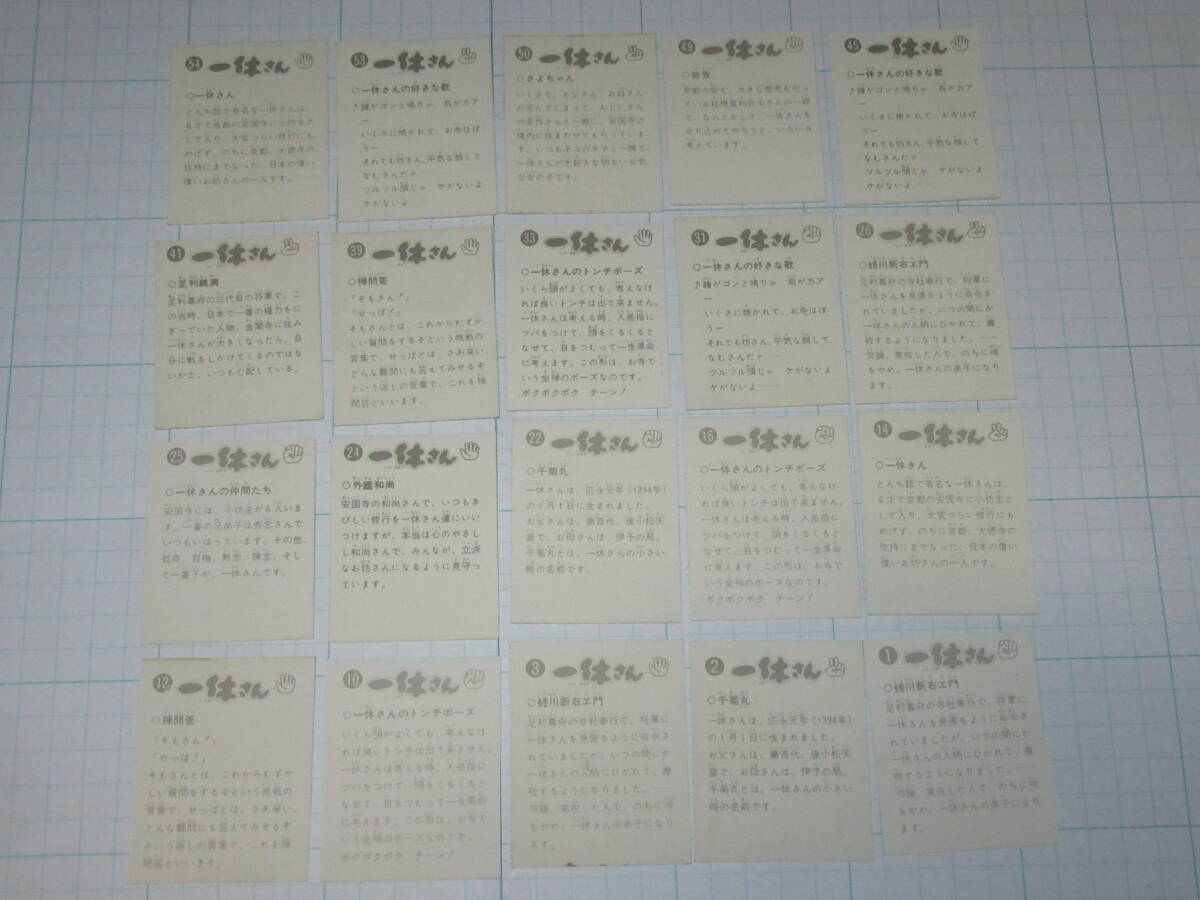 54 一休さん
○一休さん
とんち話で有名な一休さんは、
6才で京都の安国寺に小坊主と
して入り、大変つらい修行にも
めげず、のちに京都、大徳寺の
住持にまでなった、日本の偉い
偉いお坊さんの一人です。
53 一休さん
○一休さんの好きな歌
♪鐘がゴンと鳴りゃ 烏がカア
ー
いくさに焼かれて、お寺はぼ
うー
それでも坊さん、平気な顔して
なむさんだァ……
ツルツル頭じゃ ケがないよ
ケがないよ……
50 一休さん
○さよちゃん
いくさで、お父さん、お母さん
が死んでしまって、おじいさん
の吾作さんと一緒に、安国寺の
境内に住まわせてもらっていま
す。いつもネコのタマと一緒で、
一休さんが大好きな明るい元気
な女の子です。
49 一休さん
京都の街で、大きな商売をやっ
ている桔梗屋利兵衛さんの一娘
で、なんとかして、一休さんを
やり込めてやろうと、いろいろ
考えています。
45 一休さん
○一休さんの好きな歌
♪鐘がゴンと鳴りゃ 烏がカア
ー
いくさに焼かれて、お寺はぼ
うー
それでも坊さん、平気な顔して
なむさんだァ……
ツルツル頭じゃ ケがないよ
ケがないよ……
41 一休さん
○足利義満
足利幕府の三代目の将軍で、こ
の当時、日本で一番の権力をに
ぎっていた人物。金閣寺に住み
一休さんが大きくなったら、自
分に戦をしかけてくるのではな
いかと、いつも心配している。
39 一休さん
○禅問答
「そもさん!」
「せっぱ!」
そもさんとは、これからむずか
しい質問をするぞという挑戦の
言葉で、せっぱとは、さあ来い、
どんな難問にも答えてみせるぞ
という返しの言葉で、これを禅
問答といいます。
33 一休さん
○一休さんのトンチポーズ
いくら頭がよくても、考えなけ
れば良いトンチは出て来ません。
一休さんは考える時、人差指に
ツバをつけて、頭をくるくると
なぜて、目をつむって一生懸命
に考えます。この形は、お寺で
いう坐禅のポーズなのです。
ポクポクポク チーン!
31 一休さん
○一休さんの好きな歌
♪鐘がゴンと鳴りゃ 烏がカア
ー
いくさに焼かれて、お寺はぼ
うー
それでも坊さん、平気な顔して
なむさんだァ……
ツルツル頭じゃ ケがないよ
ケがないよ……
26 一休さん
○蜷川新右エ門
足利幕府の寺社奉行で、将軍に
一休さんを見張るように命令さ
れていましたが、いつの間にか
一休さんの人柄にひかれて、尊
敬するようになりました。……
勿論、実在した人で、のちに侍
をやめ、一休さんの弟子になり
ます。
25 一休さん
○一休さんの仲間たち
安国寺には、小坊主が6人いま
す。一番の兄弟子は秀念さんで
いつもいばっています。その他、
哲斉、哲梅、黙念、陳念、そし
て一番下が、一休さんです。
24 一休さん
○外鑑和尚
安国寺の和尚さんで、いつもき
びしい修行を一休さん達にいい
つけますが、本当は心のやさし
い和尚さんで、みんなが、立派
なお坊さんになるように見守っ
ています。
22 一休さん
○千菊丸
一休さんは、応永元年(1394年)
の1月1日に生まれました。
お父さんは、第百代、後小松天
皇で、お母さんは、伊予の局。
千菊丸とは、一休さんの小さい
時の名前です。
16 一休さん
○一休さんのトンチポーズ
いくら頭がよくても、考えなけ
れば良いトンチは出て来ません。
一休さんは考える時、人差指に
ツバをつけて、頭をくるくると
なぜて、目をつむって一生懸命
に考えます。この形は、お寺で
いう坐禅のポーズなのです。
ポクポクポク チーン!
14 一休さん
○一休さん
とんち話で有名な一休さんは、
6才で京都の安国寺に小坊主と
して入り、大変つらい修行にも
めげず、のちに京都、大徳寺の
住持にまでなった、日本の偉い
偉いお坊さんの一人です。
12 一休さん
○禅問答
「そもさん!」
「せっぱ!」
そもさんとは、これからむずか
しい質問をするぞという挑戦の
言葉で、せっぱとは、さあ来い、
どんな難問にも答えてみせるぞ
という返しの言葉で、これを禅
問答といいます。
10 一休さん
○一休さんのトンチポーズ
いくら頭がよくても、考えなけ
れば良いトンチは出て来ません。
一休さんは考える時、人差指に
ツバをつけて、頭をくるくると
なぜて、目をつむって一生懸命
に考えます。この形は、お寺で
いう坐禅のポーズなのです。
ポクポクポク チーン!
3 一休さん
○蜷川新右エ門
足利幕府の寺社奉行で、将軍に
一休さんを見張るように命令さ
れていましたが、いつの間にか
一休さんの人柄にひかれて、尊
敬するようになりました。……
勿論、実在した人で、のちに侍
をやめ、一休さんの弟子になり
ます。
2 一休さん
○千菊丸
一休さんは、応永元年(1394年)
の1月1日に生まれました。
お父さんは、第百代、後小松天
皇で、お母さんは、伊予の局。
千菊丸とは、一休さんの小さい
時の名前です。
1 一休さん
○蜷川新右エ門
足利幕府の寺社奉行で、将軍に
一休さんを見張るように命令さ
れていましたが、いつの間にか
一休さんの人柄にひかれて、尊
敬するようになりました。……
勿論、実在した人で、のちに侍
をやめ、一休さんの弟子になり
ます。